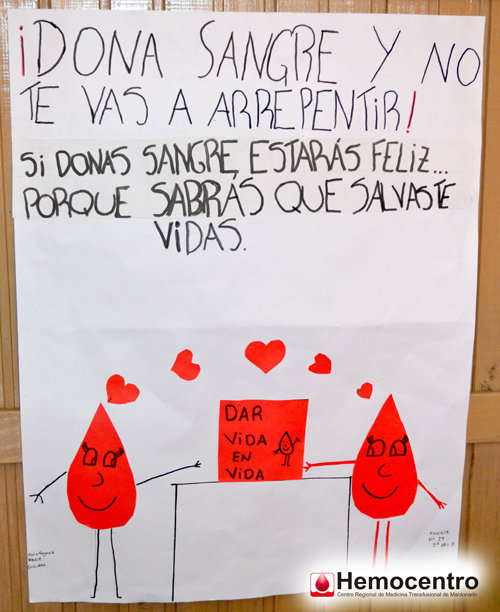 ¡DONA SANGRE Y NO
TE VAS A ARREPENTIR!
SI DONAS SANGRE, ESTARÁS FELIZ...
PORQUE SABRÁS QUE SALVASTE
VIDAS.
DAR
VIDA
EN
VIDA
Hemocentro
Centro Regional de Medicina Transfusional de Maldonado